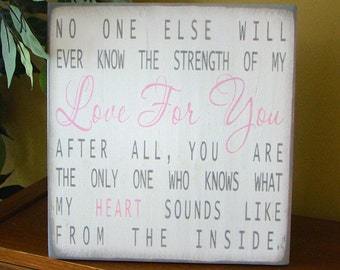 NO ONE ELSE WILL
EVER KNOW THE STRENGTH OF MY
Love For You
AFTER ALL, YOU ARE
THE ONLY ONE WHO KNOWS WHAT
MY HEART SOUNDS LIKE
FROM THE INSIDE.